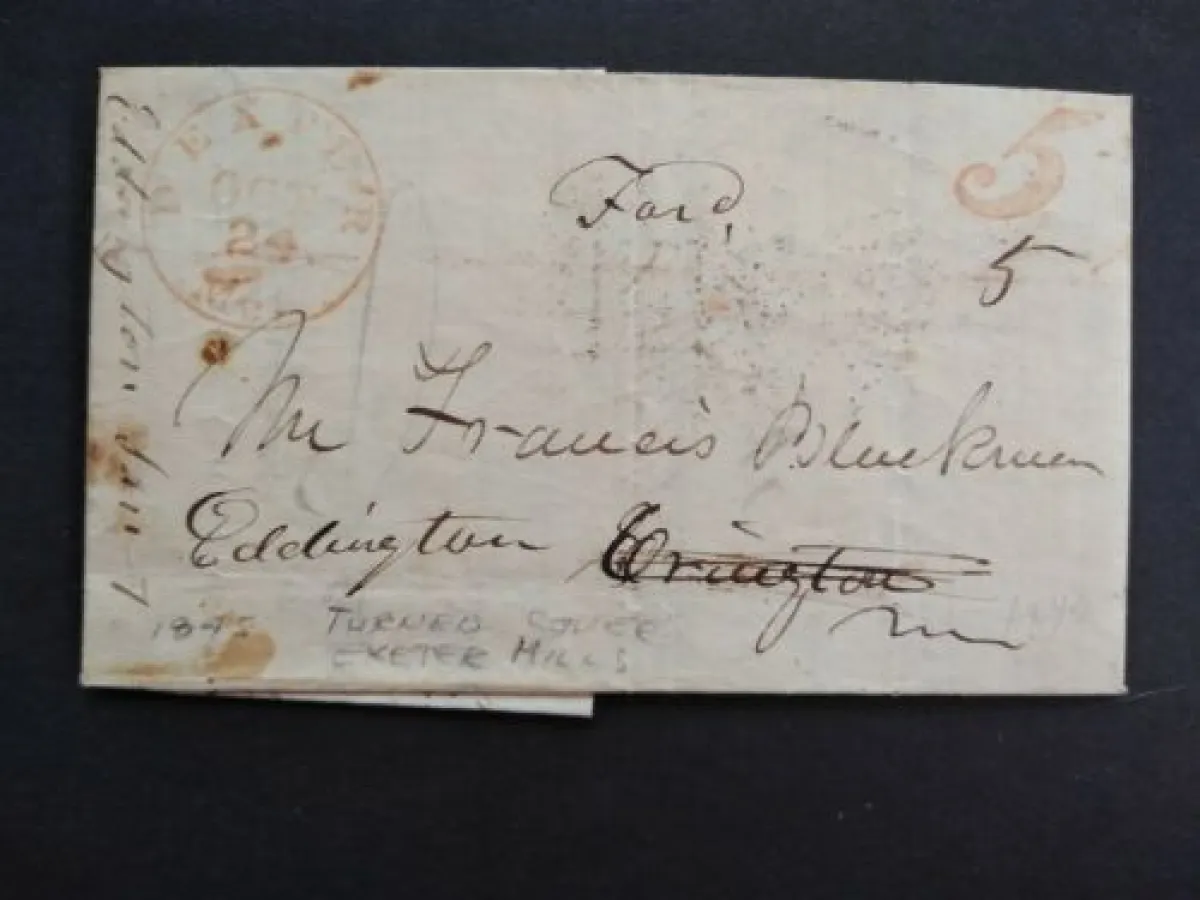 BEXTER
OCT
24
Me
5
Ford,
5
Mr Francis Blackman
Eddington Orington
Me
1845 TURNED COVER
EXETER MILLS